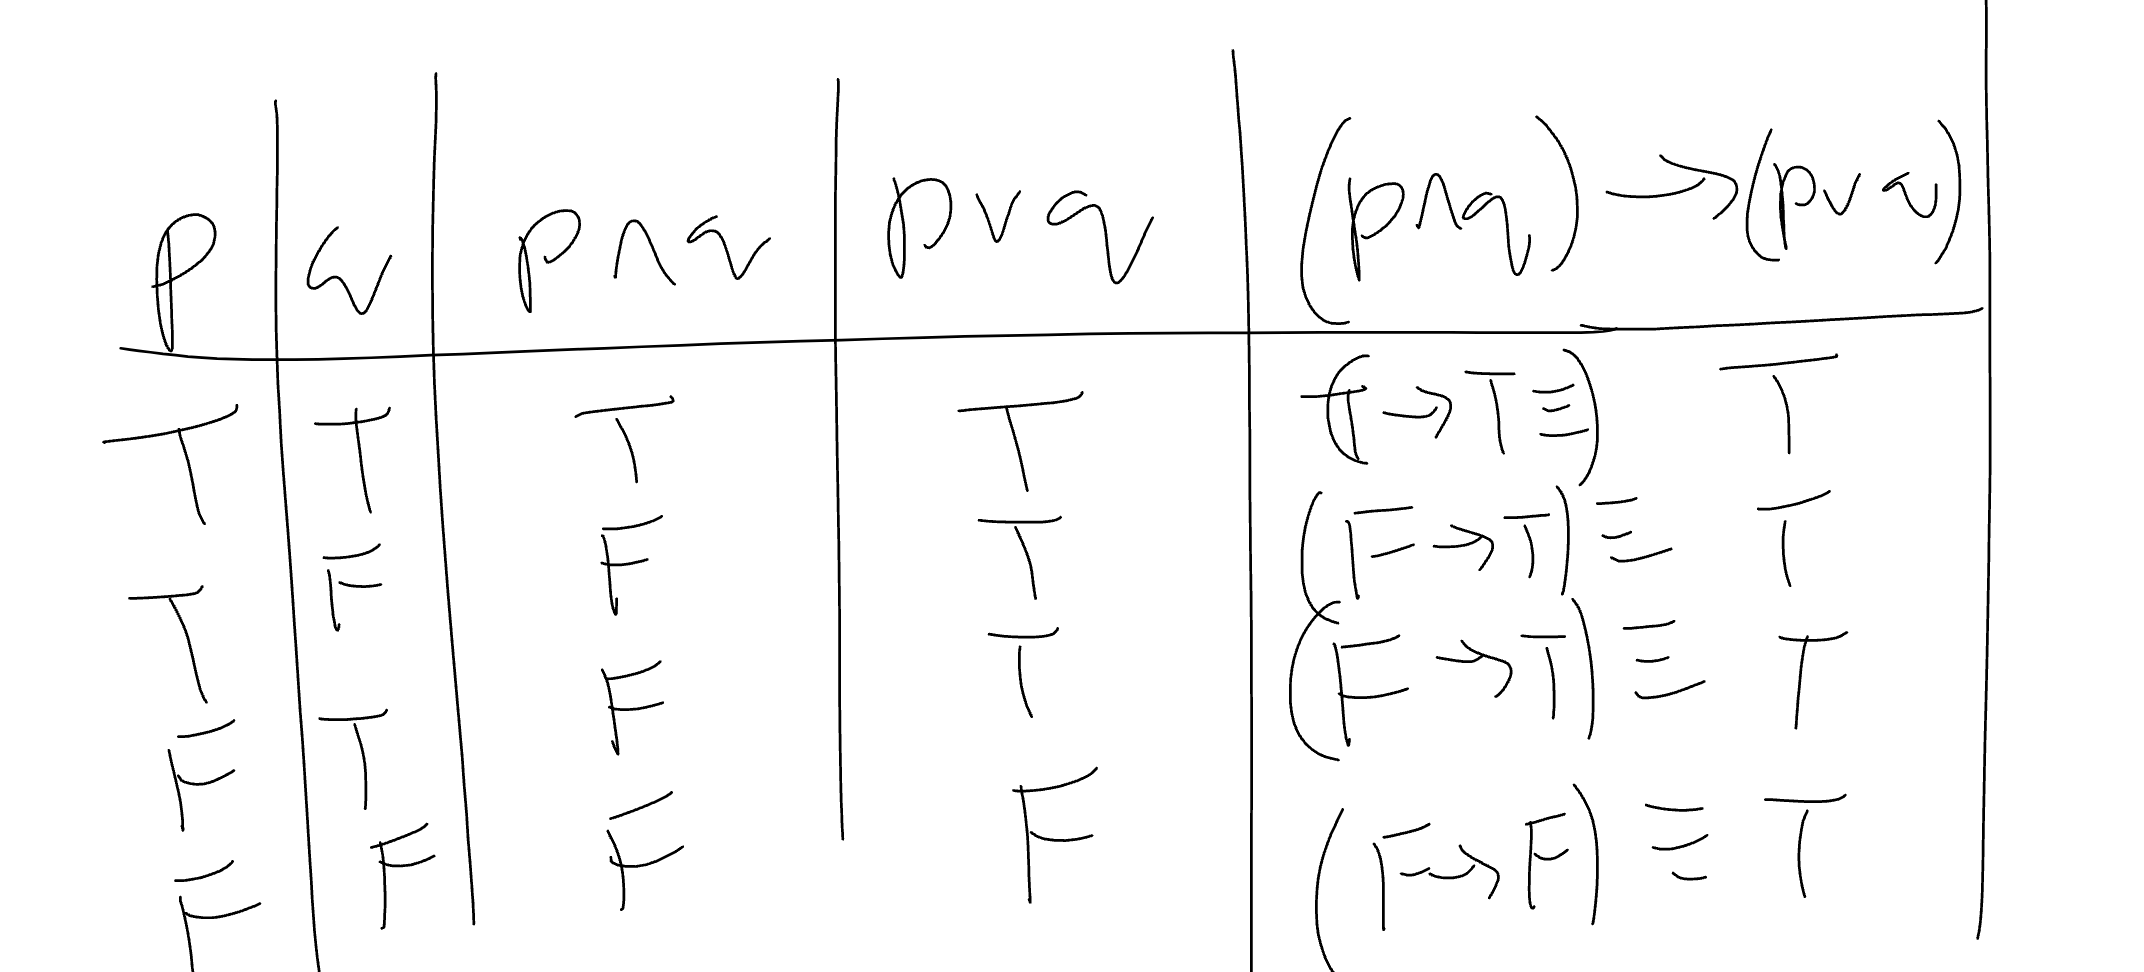 p q p∧q p∨q (p∧q)→(p∨q)
T T T T (T→T≡) T
T F F T (F→T)≡ T
F T F T (F→T)≡ T
F F F F (F→F)≡ T